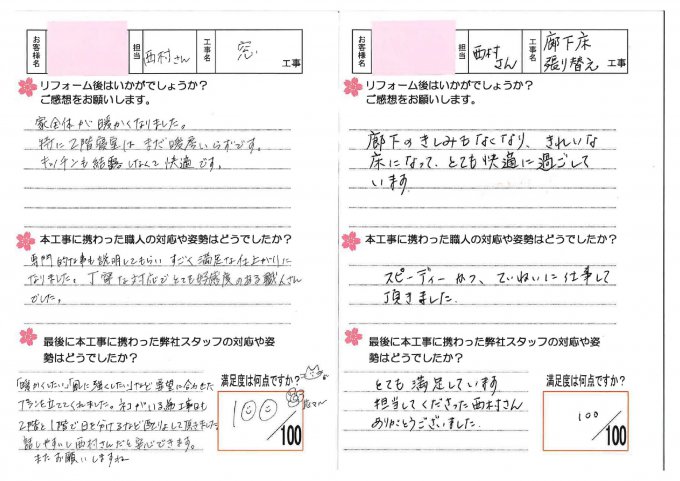 お客様名
担当
西村さん
工事名
窓
工事
リフォーム後はいかがでしょうか？
ご感想をお願いします。
家全体が暖かくなりました。
特に2階寝室はまだ暖房いらずです。
キッチンも結露しなくて快適です。
本工事に携わった職人の対応や姿勢はどうでしたか？
専門的な事も説明してもらい すごく満足な仕上がりに
なりました。丁寧な対応でとても好感度のある職人さん
でした。
最後に本工事に携わった弊社スタッフの対応や姿
勢はどうでしたか？
「暖かくしたい」「風に強くしたい」など要望に合わせた
プランを立ててくれました。ネコがいる為工事日も
2階と1階で日を分けるなど配りょして頂きました
話しやすいし西村さんだと安心できます。
またお願いしますね
満足度は何点ですか？
100
/100
お客様名
担当
西村さん
工事名
廊下床
張り替え
工事
リフォーム後はいかがでしょうか？
ご感想をお願いします。
廊下のきしみもなくなり、きれいな
床になって、とても快適に過ごして
います
本工事に携わった職人の対応や姿勢はどうでしたか？
スピーディーかつ、ていねいに仕事して
頂きました。
最後に本工事に携わった弊社スタッフの対応や姿
勢はどうでしたか？
とても満足しています
担当してくださった西村さん
ありがとうございました。
満足度は何点ですか？
100
/100